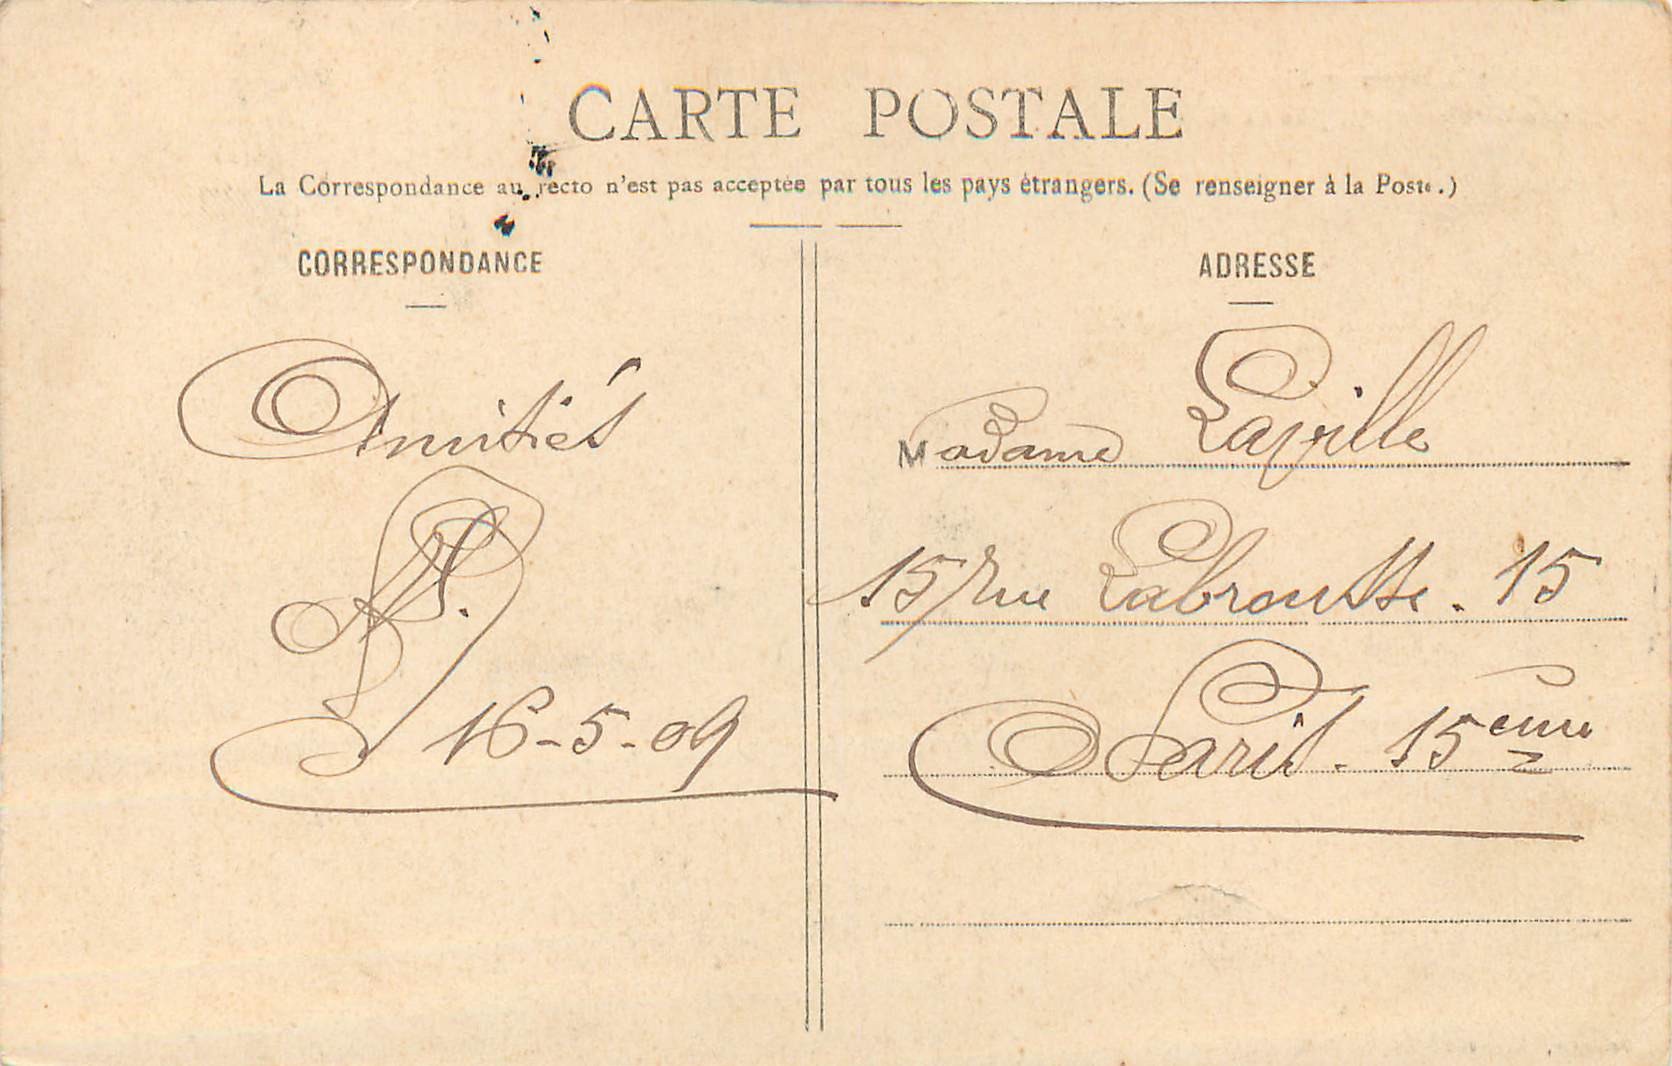 CARTE POSTALE
La Correspondance au recto n'est pas acceptée par tous les pays étrangers. (Se renseigner à la Poste.)
CORRESPONDANCE
Amitiés
16-5-09
ADRESSE
Madame Laville
15 rue Labrouste. 15
Paris. 15eme